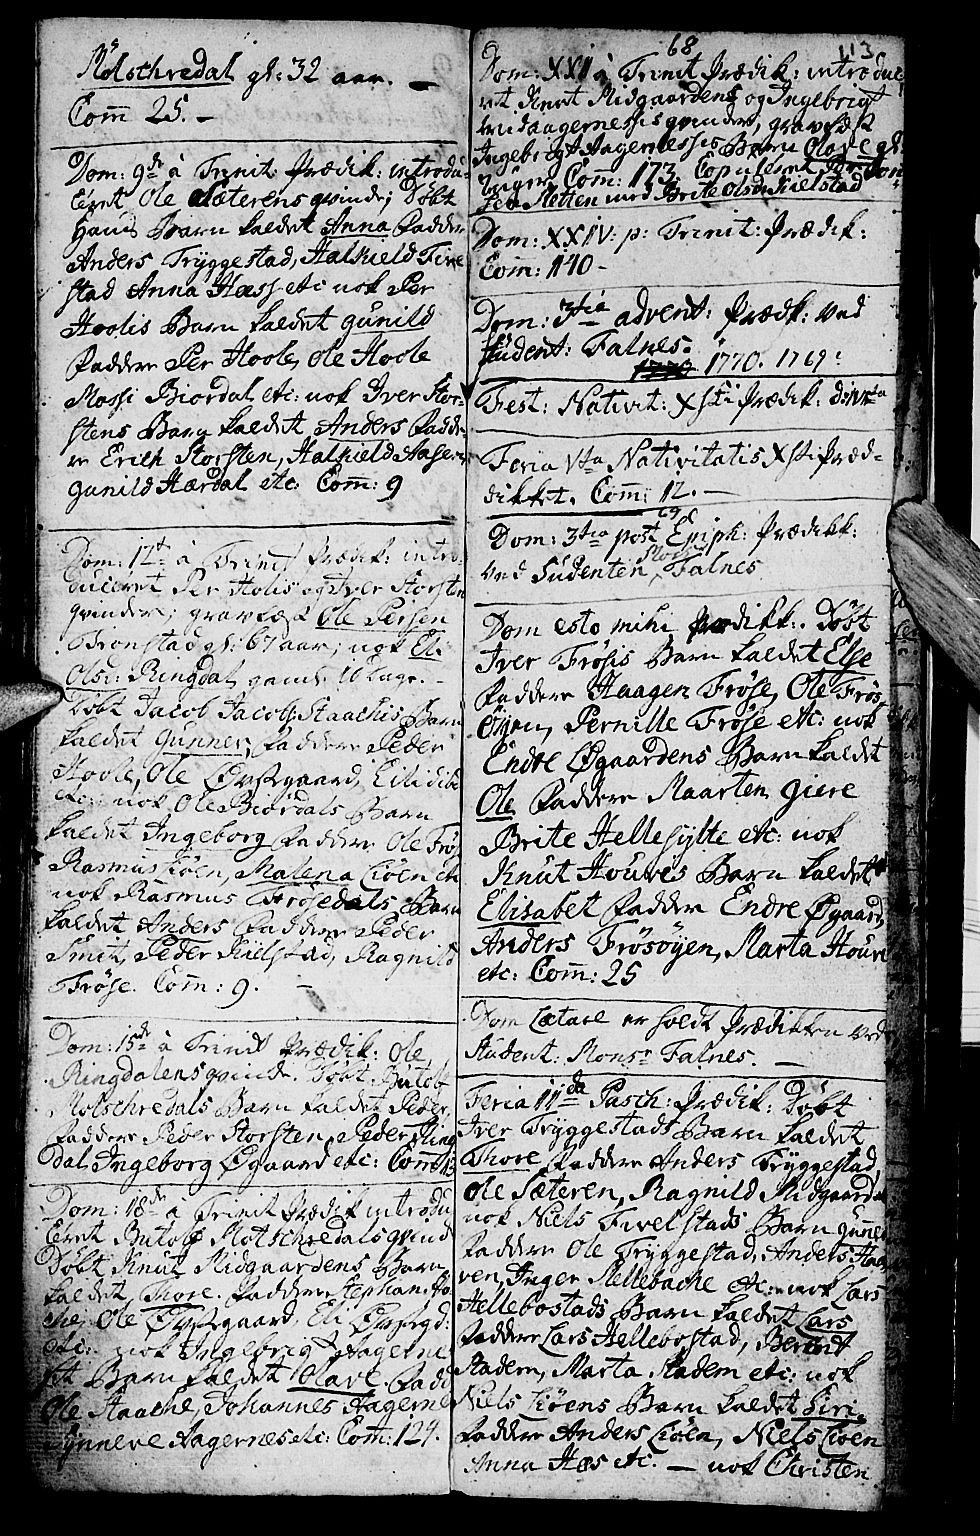 Molschredal gl: 32 aar. —
Com̄ 25. –
Dom: 9de à Trinit: Prædik: introdu-
ceret Ole Sæterens qvinde; Døbt
Hans Barn kaldet Anna Faddere
Anders Tryggestad, Halkield Five
stad Anna Hæss etc nok Per
Hoolis Barn kaldet Gunild
Faddere Per Hoole, Ole Hoole
Mossi Biordal etc: nok Iver Stor-
stens Barn kaldet Anders Fadde-
re Erich Storsten, Halkield Aasen
Gunild Hærdal etc: Com̄: 9
Dom: 12t à Trinit Prædik: intro
duceret Per Holis og Iver Storsten
qvinder; gravfæst Ole Persen
Tronstad gl: 67 aar; nok Eli
Olsd: Ringdal, gaml: 16 Dage. –
Døbt Jacob Jacobs. Staachis Barn
kaldet Gunner, Faddere Peder
Hoole, Ole Øvstgaard,
etc: nok Ole Biordals Barn
kaldet Ingeborg Faddere Ole Frøs
Rasmus Kiøen, Malena Kiøen etc
nok Rasmus Frøsedals Barn
kaldet Anders Faddere Peder
Smit, Peder Kielstad, Ragnild
Frøse. Com̄: 9. –
Dom: 15de à Trinit Prædik: Ole
Ringdalens qvinde. Døbt Butolf
Molschredals Barn kaldet Peder,
Faddere Peder Storsten, Peder Ring
dal, Ingeborg Øgaard etc: Com̄:
Dom: 18de à Trinit Prædik introdu
ceret Butolf Molschredals qvind
Døbt Knut Midgaardens Barn
kaldet Thore. Faddere Stephan
Ole Øvstgaard, Eli Øvstgd:
etc: nok Ingebrigt Aagerne
Barn kaldet Olave. Fadd
Ole Staache, Johannes Aagerne
Synneve Aagernes etc: Com: 124.
68 113
Dom: XXI à Trinit Prædik: introdu
ret Knut Midgaardens og Ingebrigt
Aagernessis qvinder, gravfæst
Ingebrigt Aagernessis Barn Olave gl:
uger Com̄: 173. Copuleret
Sletten med Brite Olsd: Fielstad
Dom: XXIV: p: Trinit: Prædik:
Com̄: 140 –
Dom: 3tia advent: Prædk: ved
Student: Falnes.
1770. 1769:
Fest: Nativit: Xsti Prædik:
Feria Vta Nativitatis Xsti Præd-
dikket. Com̄: 12. –
Dom: 3tia post Epiph: Prædikk:
ved Sudenten Mons: Falnes
Dom esto mihi Prædikk:. Døbt
Iver Frøsis Barn kaldet Else
Faddere Haagen Frøse, Ole Frøs
Øyen, Pernille Frøse etc: nok
Endre Øgaardens Barn kaldet
Ole Faddere Maarten Giere
Brite Hellesylte etc: nok
Knut Houves Barn kaldet
Elisabet Faddere Endre Øgaard,
Anders Frøsøyen, Marta Houve
etc: Com̄: 25
Dom Lætare er holdt Prædiken ved
Student: Monsr Falnes. —
Feria IIda Pasch: Prædik: Døbt
Iver Tryggestads Barn kaldet
Thore Faddere Anders Tryggestad,
Ole Sæteren, Ragnild Midgaarden
nok Niels Fivelstads Barn Gunild
Faddere Ole Tryggestad, Anders
ven, Inger Mellebache etc: nok Lars
Hellebostads Barn kaldet Lars
Faddere Lars Hellebostad, Berent
Stadem, Marta Stadem etc: nok
Niels Kiøens Barn kaldet Siri.
Faddere Anders Kiøen, Niels Kiøen
Anna Hæs etc: — nok Christen